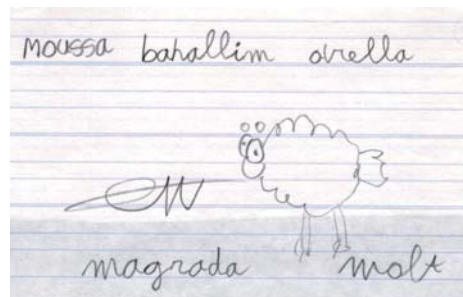 moussa bahallim ovella
magrada molt